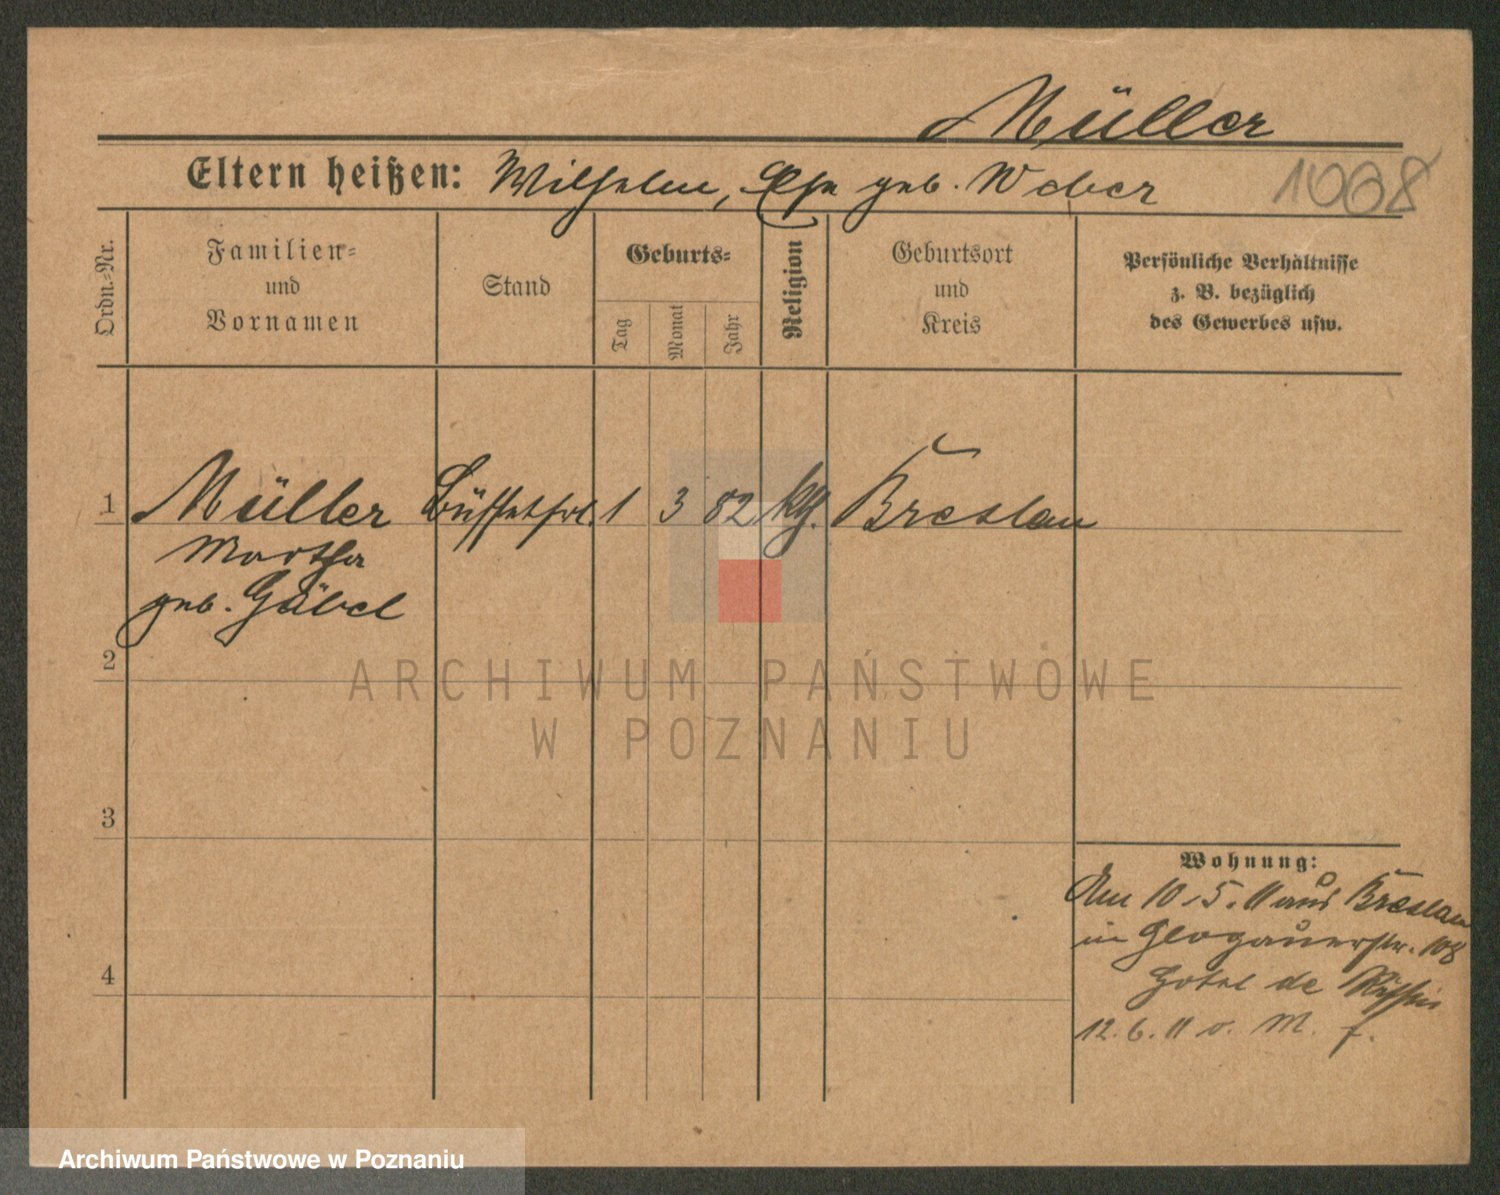 Müller
Eltern heißen: Wilhelm, Ehe geb. Weber
1008
Ordn.-Nr.
Familien- und Vornamen
Stand
Geburts-
Tag
Monat
Jahr
Religion
Geburtsort und Kreis
Persönliche Verhältnisse z. B. bezüglich des Gewerbes usw.
1 Müller Büffetfrl. 1 3 82 kth. Breslau
Martha
geb. Gäbel
2
ARCHIWUM PAŃSTWOWE
W POZNANIU
3
Wohnung:
Am 10.5.11 aus Breslau
in Glogauerstr. 108
4
Hotel de Russie
12.6.11 v. M. f.
Archiwum Państwowe w Poznaniu